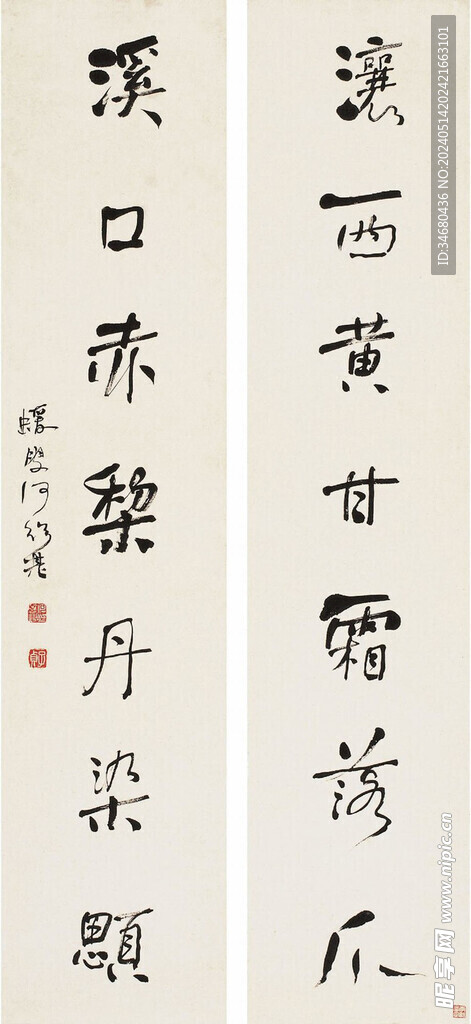 瀼西黄甘霜落爪
溪口赤棃丹染顋
蝯叟何紹基
ID:34680436 NO:20240514202421663101
昵享网 www.nipic.cn